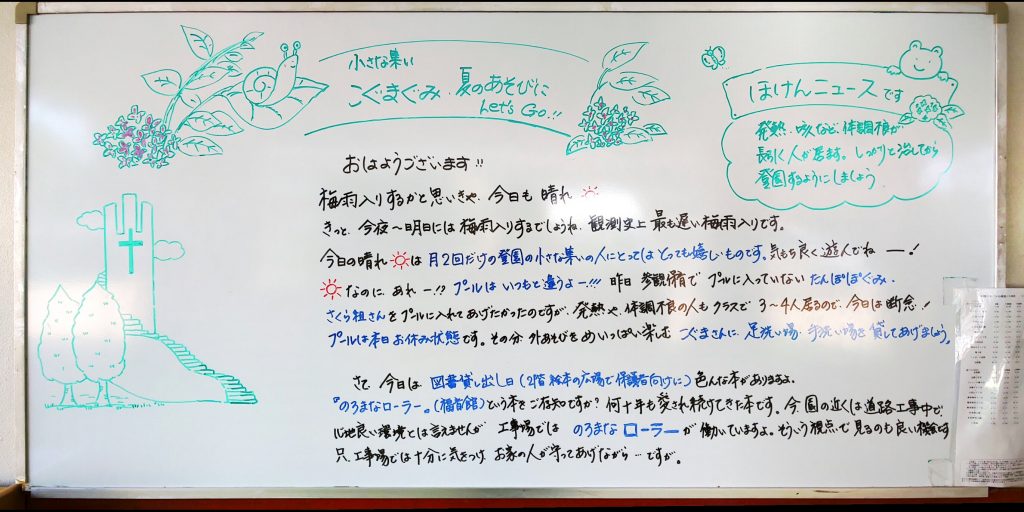 小さな集い
こぐまぐみ 夏のあそびに
Let's Go!!
ほけんニュースです
発熱、咳など、体調不良が
長引く人が居ます。しっかりと治してから
登園するようにしましょう
おはようございます!!
梅雨入りするかと思いきや、今日も晴れ
きっと、今夜〜明日には梅雨入りするでしょうね、観測史上最も遅い梅雨入りです。
今日の晴れは月2回だけの登園の小さな集いの人にとってはとっても嬉しいものです。気もち良く遊んでねー!
なのに、あれー!?プールはいつもと違うよー!!! 昨日 参観保育でプールに入っていないたんぽぽぐみ・
さくら組さんをプールに入れてあげたかったのですが、発熱や、体調不良の人もクラスで3〜4人居るので、今日は断念!
プールは本日お休み状態です。その分 外あそびをめいっぱい楽む こぐまさんに、足洗い場・手洗い場を貸してあげましょう。
さて、今日は 図書貸し出し日(2階 絵本の広場で保護者向けに)色んな本がありますよ。
『のろまなローラー』(福音館)という本をご存知ですか?何十年も愛され続けてきた本です。今、園の近くは道路工事中で、
心地良い環境とは言えませんが、工事場では のろまなローラーが働いていますよ。そういう視点で見るのも良い機会です
只、工事場では十分に気をつけ お家の人が守ってあげながら…ですが。